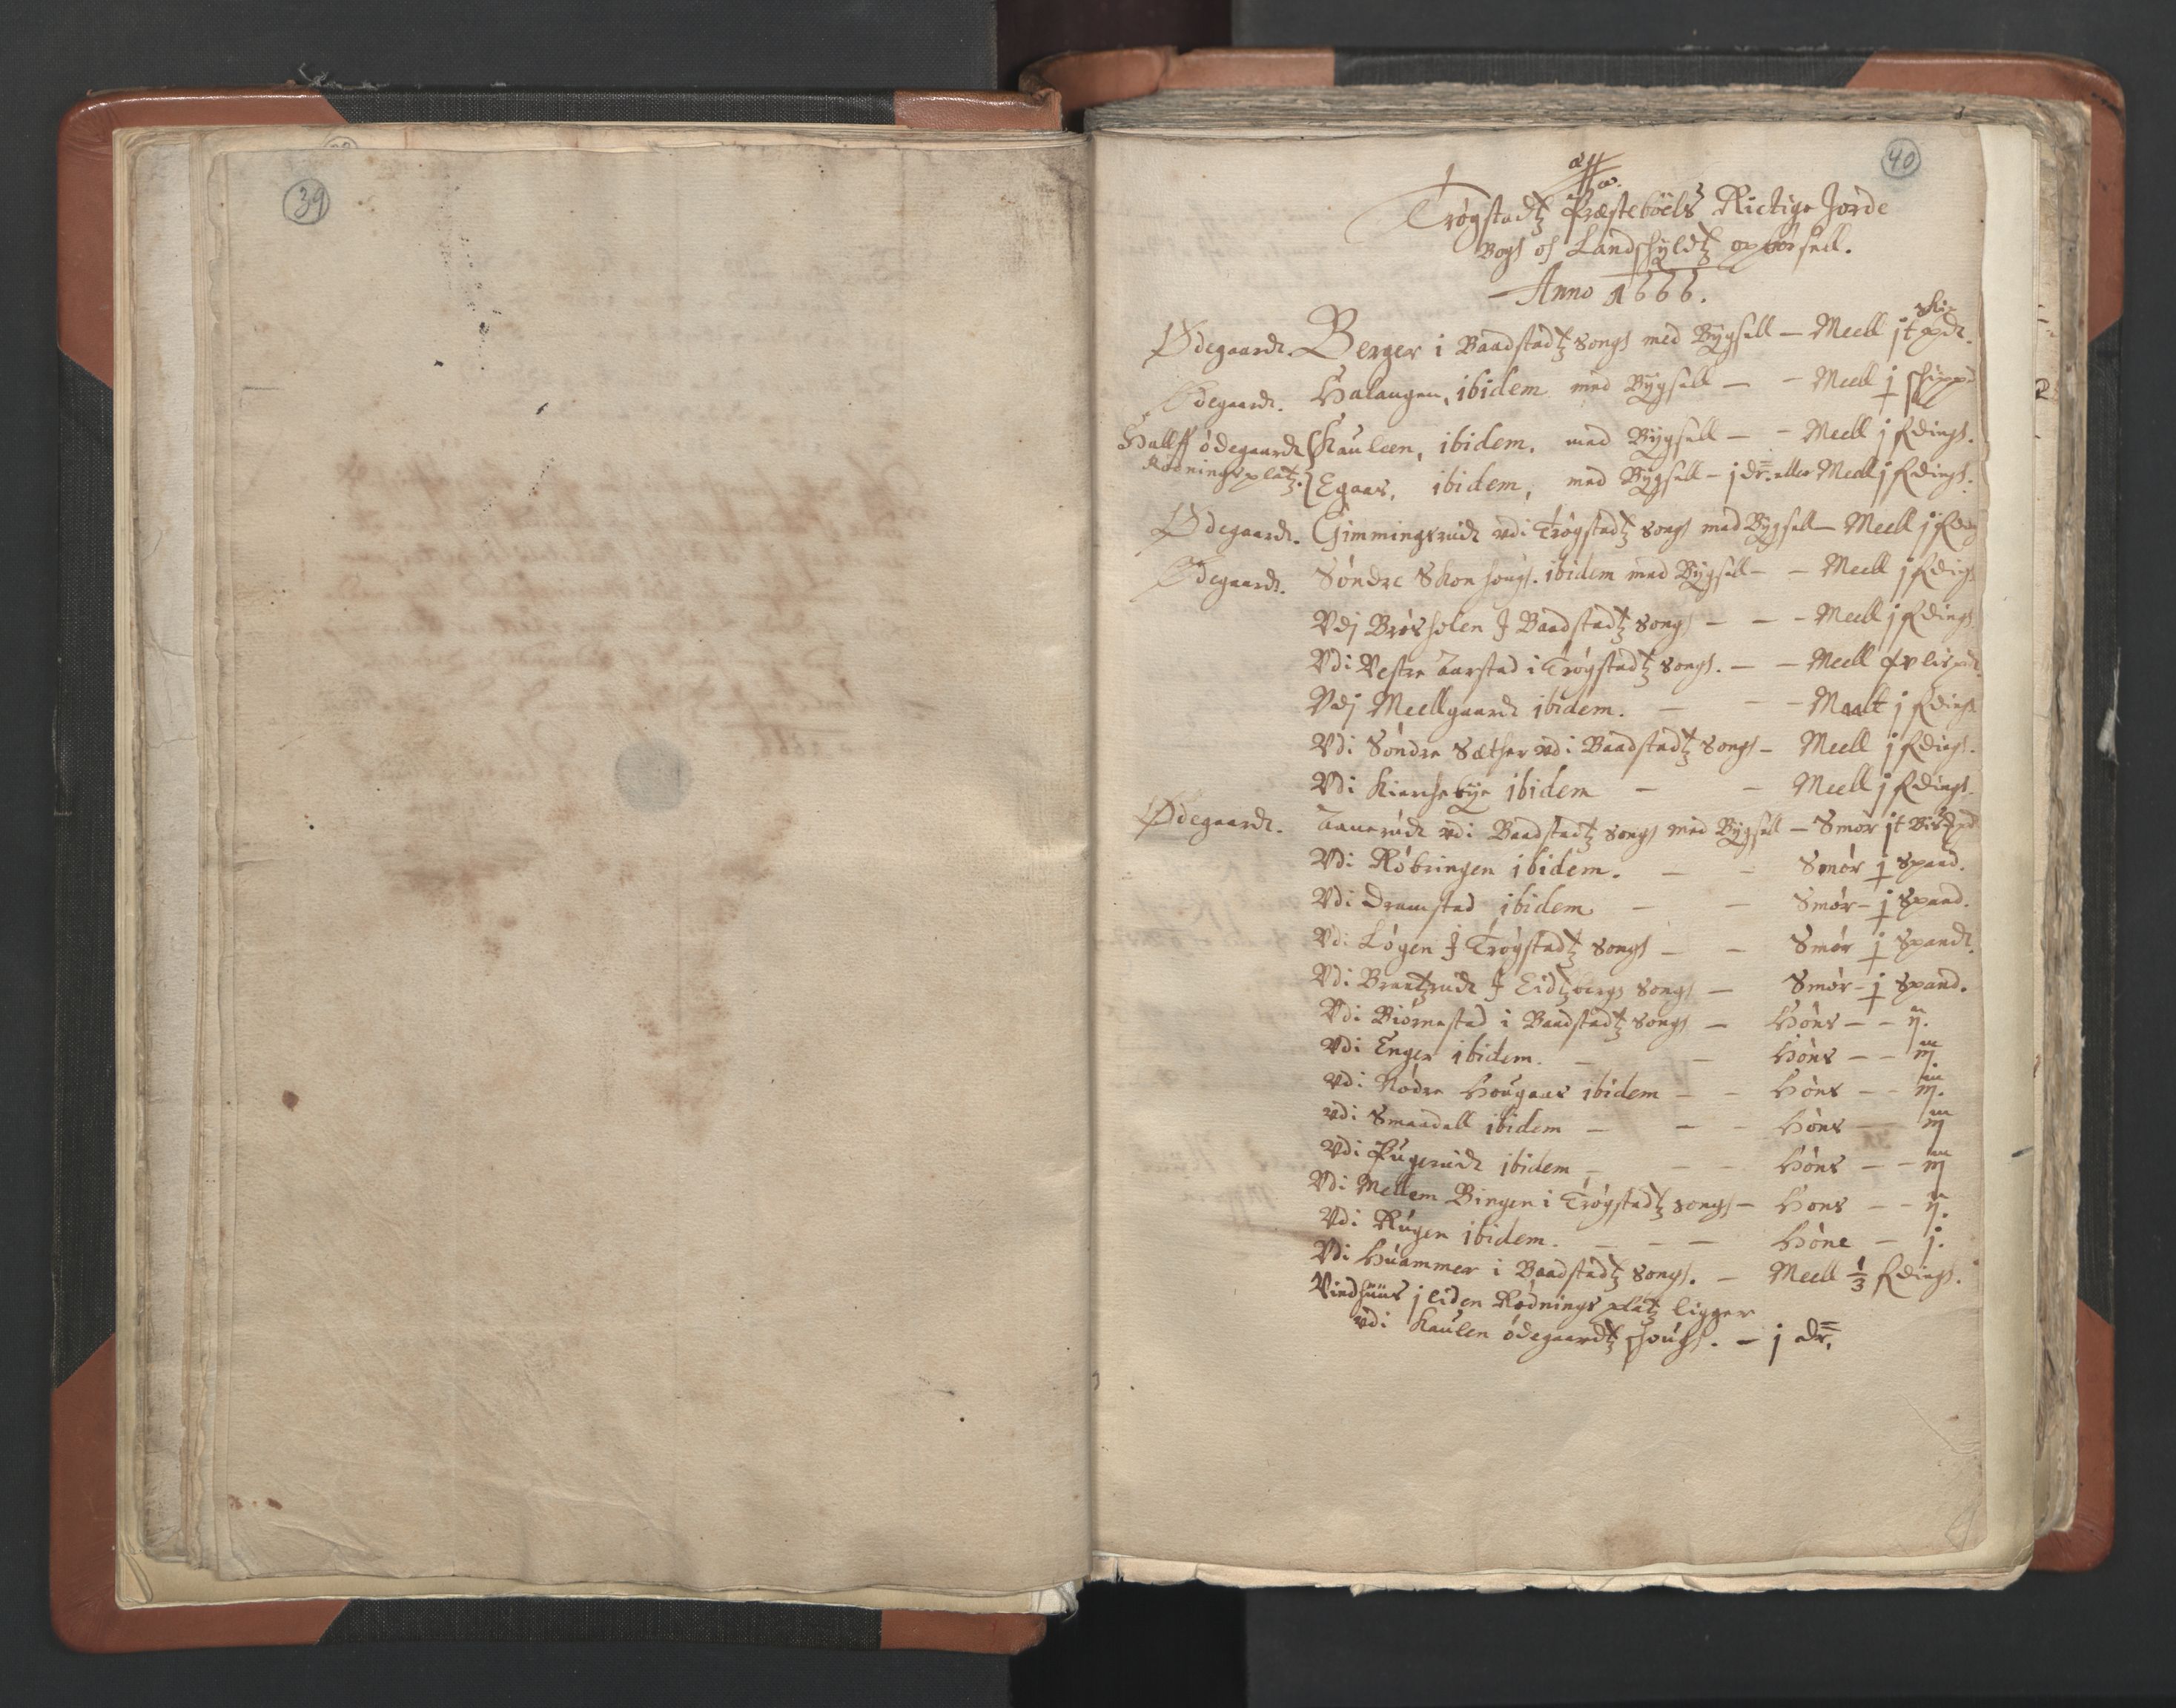 39
40
Trøgstadtz Præstebóels Rictige Jorde
Bogh oc Landschyldtz opbórsell.
Anno 1666.
Ødegaard. Berger i Baadstadtz Sogn med Bygsell — Meell jt Skipd.
Ødegaard. Halangen, ibidem med Bygsell — — Meell ɉ schippd
Hallff ódegaard Kauleen, ibidem. med Bygsell — — Meell j fdingh.
Rødningsplatz. Egaas, ibidem, med Bygsell — j dr. eller Meell j fdingh.
Ødegaard. Gimmingsrud vdi Trógstadtz Sogn med Bygsell — Meell j fding
Ødegaard. Sóndre Skonhough. ibidem med Bygsell — — Meell j fdingh
Vdj Brøsholen J Baadstadtz Sogn — — — Meell j fdingh
Vdi Vestre Taarstad i Trógstadtz Sogn. — — Meell v lispd.
Vdj Meellgaard ibidem. — — — Maalt j fdingh
Vdi Sóndre Sæther vdi Baadstadtz Sogn — Meell j fdingh.
Vdi Kierchebye ibidem — — Meell j fdingh.
Ødegaard. Taaerúd vdi Baadstadtz Sogn med Bygsell — Smór jt Bismpd
Vdi Róbringen ibidem. — — Smór ɉ Spand.
Vdi Dramstad ibidem — — Smór — ɉ Spand.
Vdi Lógen J Trógstadtz Sogn — — Smór ɉ Spandt.
Vdi Brautzrud J Eidtzbergs Sogn — Smór — ɉ Spand.
Vdi Biórnestad i Baadstadtz Sogn — Hóns — — ij.
Vdi Enger ibidem. — — Hóns — — iij.
Vdi Nódre Hougaas ibidem — — Hóns — — iij.
Vdi Smaadall ibidem — — — Hóns — — iij
Vdi Fugerúd ibidem — — — Hóns — — iij
Vdi Mellem Bingen i Trógstadtz Sogn — Hons — — ij.
Vdi Rúgen ibidem. — — — Hóne — j.
Vdi Húammer i Baadstadtz Sogn. — Meell 1/3 fdingh.
Vindhuus j liden Rødnings platz ligger
vdi Kaulen ódegaardtz schough. — j dr.